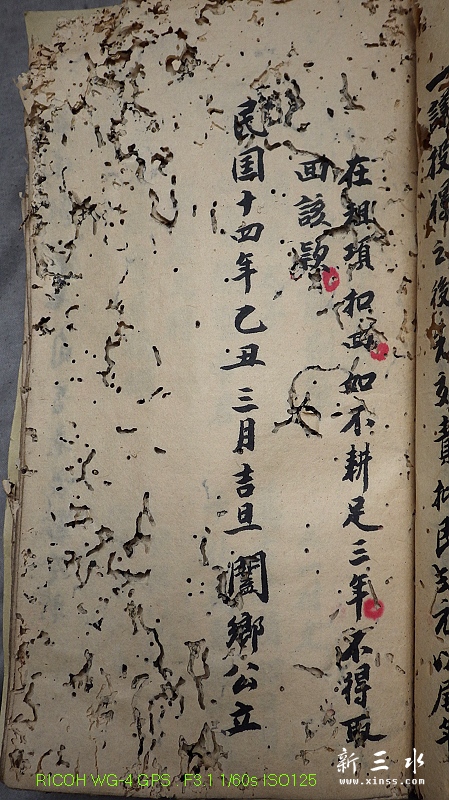 一議投得之後
在祖項扣如不耕足三年不得取
回該
民国十四年乙丑三月吉旦闔鄉公立
新三水
www.xinss.com
RICOH WG-4 GPS F3.1 1/60s ISO125